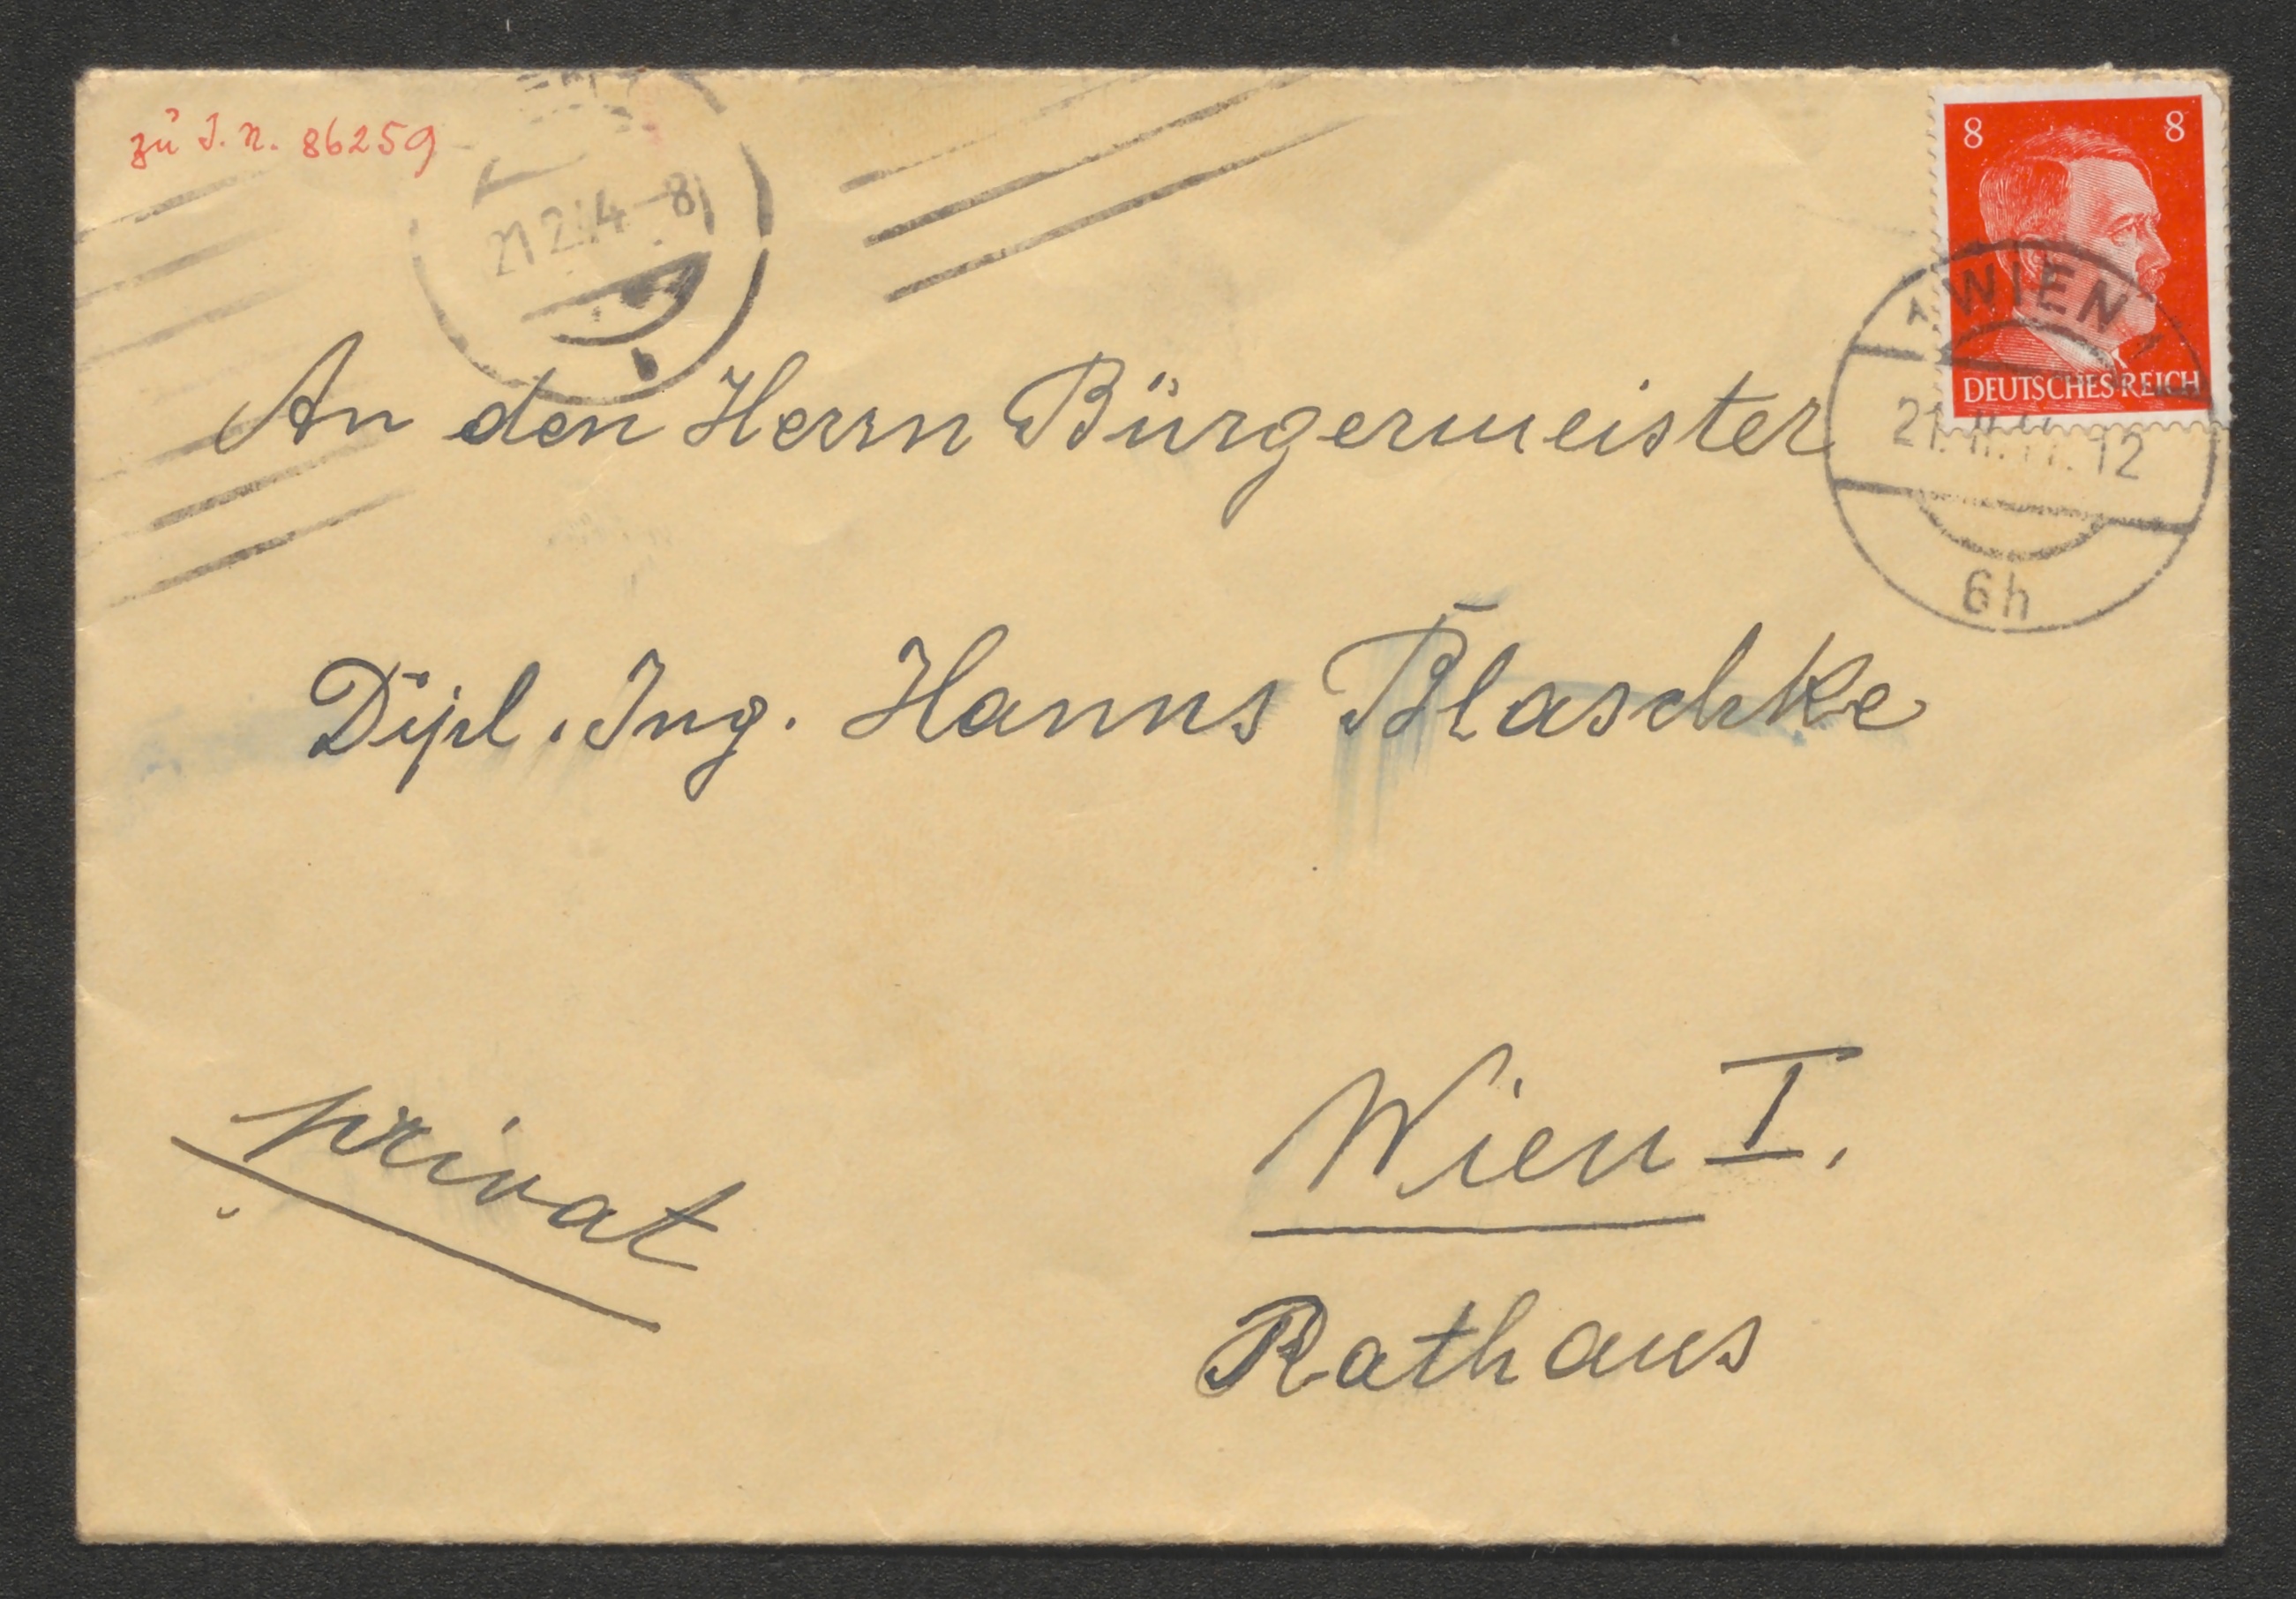 zu I. N. 86259
21.2.44-8
8 8
WIEN
DEUTSCHES REICH
21.II.44.12
6h
An den Herrn Bürgermeister
Dipl. Ing. Hanns Blaschke
privat
Wien I.
Rathaus